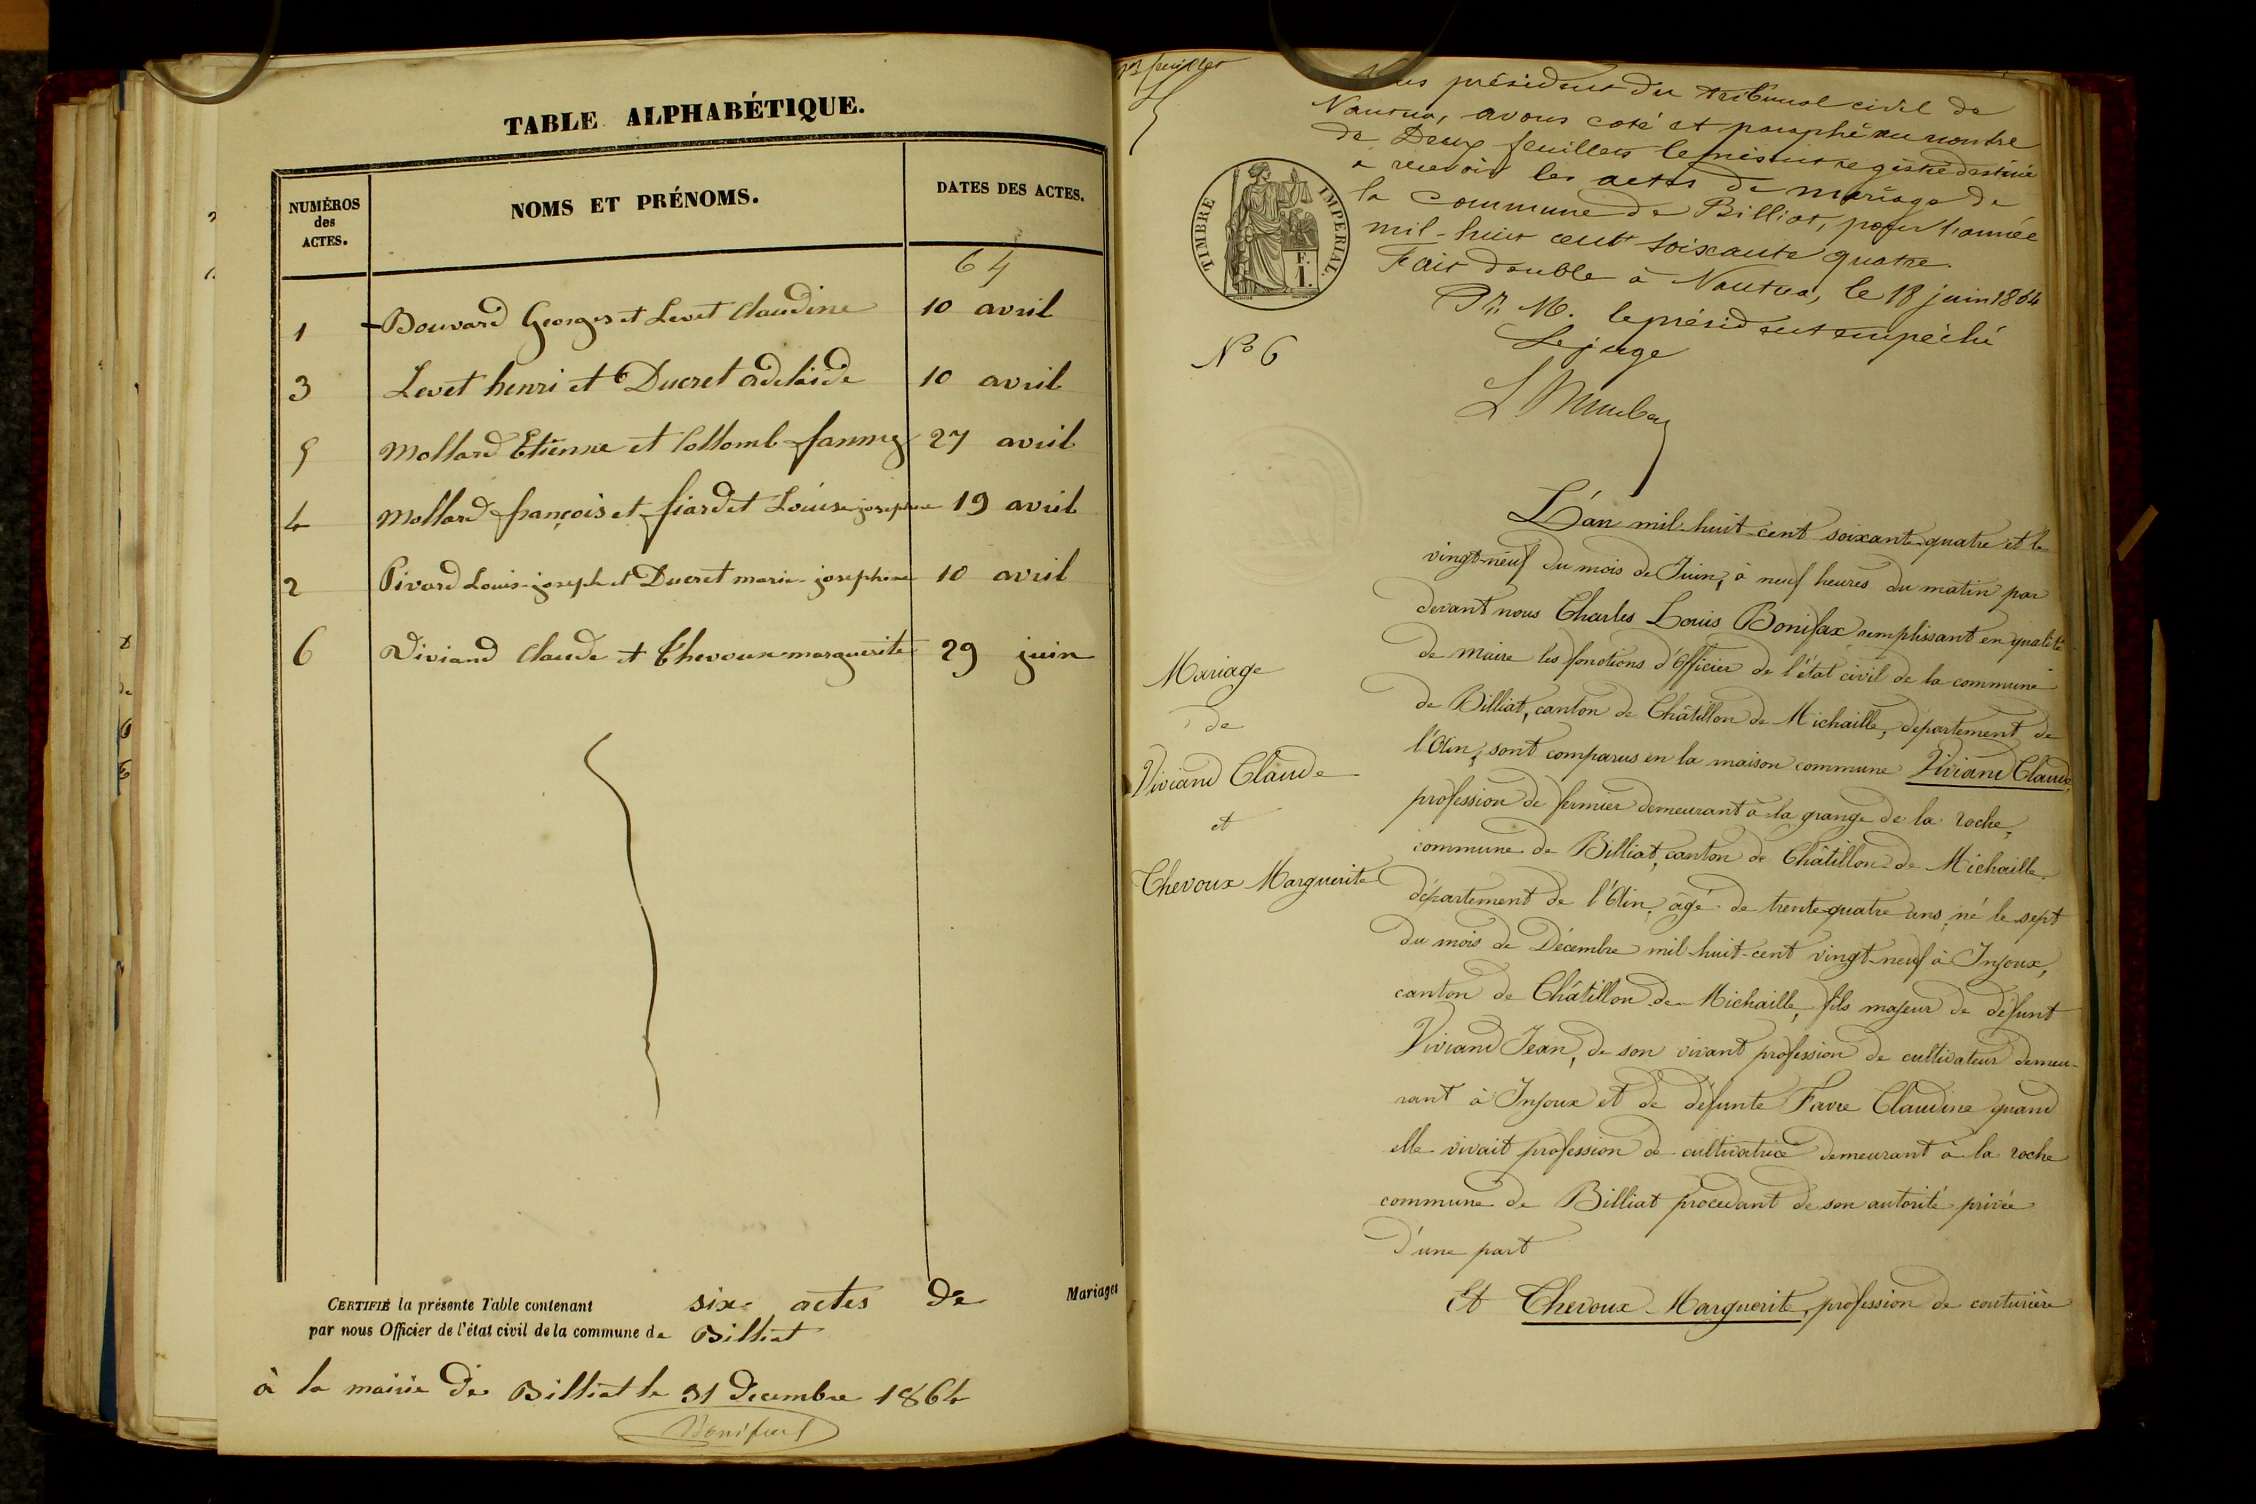 TABLE ALPHABÉTIQUE.
NUMÉROS des ACTES.
NOMS ET PRÉNOMS.
DATES DES ACTES.
64
1 Bouvard Georges et Levet Claudine 10 avril
3 Levet henri et Ducret adelaide 10 avril
5 Mollard Etienne et Collomb fanny 27 avril
4 Mollard françois et fiardet Louise josephine 19 avril
2 Pivard Louis-joseph et Ducret marie josephine 10 avril
6 Viviand Claude et Chevoux marguerite 29 juin
CERTIFIÉ la présente Table contenant six actes de Mariages
par nous Officier de l'état civil de la commune de Billiat
à la mairie de Billiat le 31 decembre 1864
1er feuillet
Nous président du tribunal civil de
Nantua, avons coté et paraphé au nombre
de Deux feuillets le présent registre destiné
à recevoir les actes de mariage de
la commune de Billiat, pour l'année
mil-huit cent soixante quatre.
Fait double à Nantua, le 18 juin 1864
Pr. M. le président empêché
Le juge
TIMBRE IMPERIAL.
N° 6
Mariage
de
Viviand Claude
et
Chevoux Marguerite
L'an mil-huit-cent soixante-quatre et le
vingt-neuf du mois de Juin, à neuf heures du matin par
devant nous Charles Louis Bonifax remplissant en qualité
de maire les fonctions d'Officier de l'état civil de la commune
de Billiat, canton de Châtillon de Michaille, département de
l'Ain, sont comparus en la maison commune Viviand Claude,
profession de fermier demeurant à la grange de la roche,
commune de Billiat, canton de Châtillon-de-Michaille,
département de l'Ain, agé de trente-quatre ans, né le sept
du mois de Décembre mil-huit-cent vingt-neuf à Injoux,
canton de Châtillon-de-Michaille, fils majeur de défunt
Viviand Jean, de son vivant profession de cultivateur demeu-
rant à Injoux et de défunte Favre Claudine quand
elle vivait profession de cultivatrice demeurant à la roche
commune de Billiat procedant de son autorité privée
d'une part
Et Chevoux Marguerite, profession de couturière